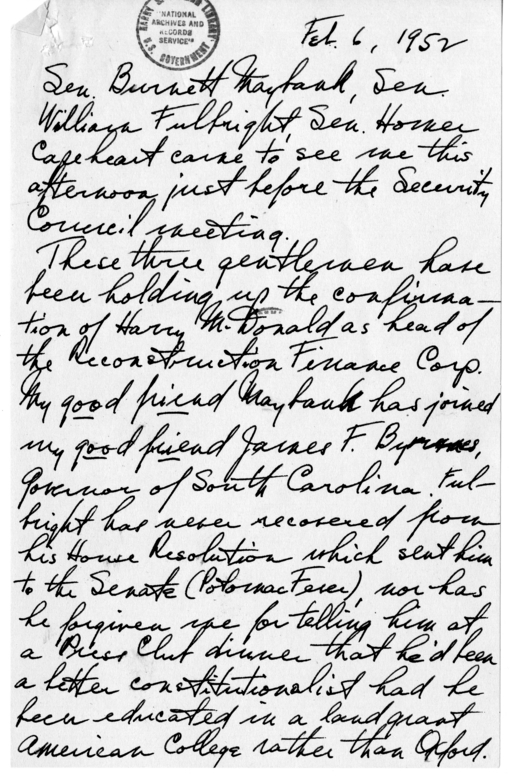 HARRY S. LIBRARY
"NATIONAL
ARCHIVES AND
RECORDS
SERVICE"
U.S. GOVERNMENT
Feb. 6, 1952
Sen. Burnett Maybank, Sen.
William Fulbright, Sen. Homer
Capeheart came to see me this
afternoon just before the Security
Council meeting.
These three gentlemen have
been holding up the confirma-
tion of Harry McDonald as head of
the Reconstruction Finance Corp.
My good friend Maybank has joined
my good friend James F. Byrnes,
Governor of South Carolina. Ful-
bright has never recovered from
his House Resolution which sent him
to the Senate (Potomac Fever), nor has
he forgiven me for telling him at
a Press Club dinner that he'd been
a better constitutionalist had he
been educated in a land grant
American College rather than Oxford.